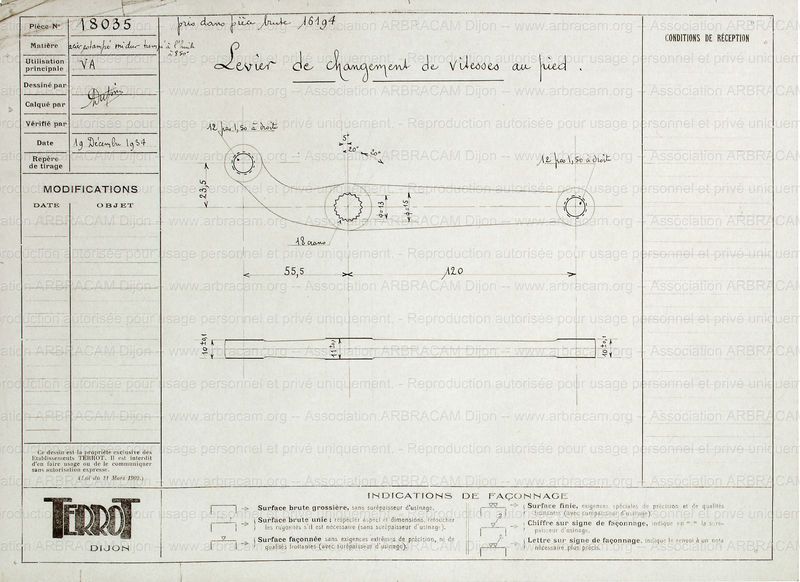 Pièce N° 18035
pris dans pièce brute 16194
Matière acier estampé mi dur trempé à l'huile
à 850°
Utilisation
principale VA
Dessiné par
Calqué par
Vérifié par
Date 19 Décembre 1954
Repère
de tirage
MODIFICATIONS
DATE OBJET
Levier de changement de vitesses au pied.
CONDITIONS DE RÉCEPTION
12 pas 1,50 à droit
5°
20° 20°
12 pas 1,50 à droit
23,5
φ=13
φ=15
18 crans
55,5
120
10 ±0,1
11 ±0,1
10 ±0,1
Ce dessin est la propriété exclusive des
Etablissements TERROT. Il est interdit
d'en faire usage ou de le communiquer
sans autorisation expresse.
(Loi du 11 Mars 1902.)
TERROT
DIJON
INDICATIONS DE FAÇONNAGE
Surface brute grossière, sans surépaisseur d'usinage.
Surface brute unie; respecter aspect et dimensions, retoucher
les rugosités s'il est nécessaire (sans surépaisseur d'usinage).
Surface façonnée sans exigences extrêmes de précision, ni de
qualités frottantes (avec surépaisseur d'usinage).
Surface finie, exigences spéciales de précision et de qualités
frottantes (avec surépaisseur d'usinage).
Chiffre sur signe de façonnage, indique en la suré-
paisseur d'usinage.
Lettre sur signe de façonnage, indique le renvoi à un nota
nécessaire plus précis.
Association ARBRACAM Dijon -- www.arbracam.org -- Association ARBRACAM Dijon -- www.arbracam.org
Reproduction autorisée pour usage personnel et privé uniquement. - Reproduction autorisée pour usage personnel et privé uniquement.